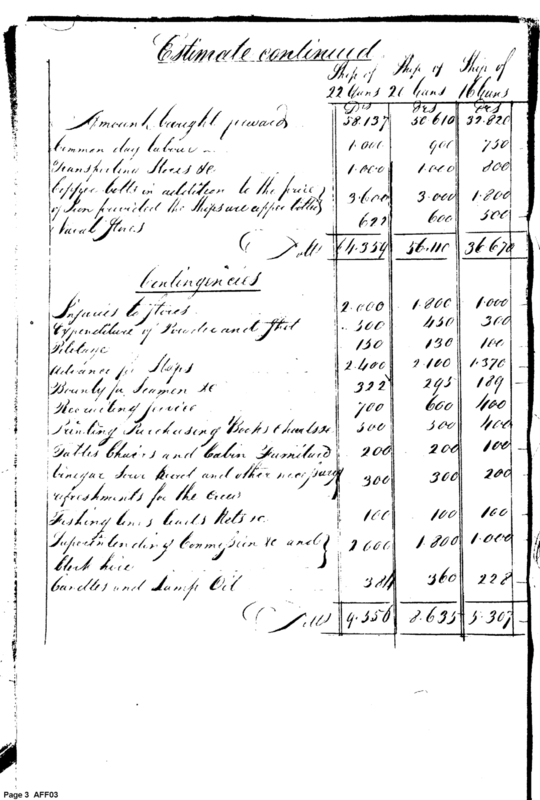 Estimate continued
Ship of Ship of Ship of
22 Guns 20 Guns 16 Guns
Drs Drs Drs
Amount brought forward 58.137 50 610 32.820
Common day labour 1.000 900 750
Transporting Stores &c 1.000 1.000 800
Copper bolts in addition to the price
of Iron provided the Ships are copper bolted 3.600 3.000 1.800
Naval Stores 622 600 500
Dolls 64.359 56.110 36 670
Contingencies
Injuries to Stores 2.000 1.800 1.000
Expenditure of Powder and Shot 500 450 300
Pilotage 150 130 100
Advance for Slops 2.400 2.100 1.370
Bounty for Seamen &c 322 295 189
Recruiting service 700 600 400
Printing Purchasing Books Charts &c 500 500 400
Tables Chairs and Cabin Furniture 200 200 100
Vinegar and other necessary
refreshments for the Crew 300 300 200
Fishing lines leads Nets &c 100 100 100
Superintending Commission &c and
Clerk hire 2 000 1.800 1.000
Candles and Lamp Oil 384 360 228
Dolls 9.556 8.635 5.307
Page 3 AFF03